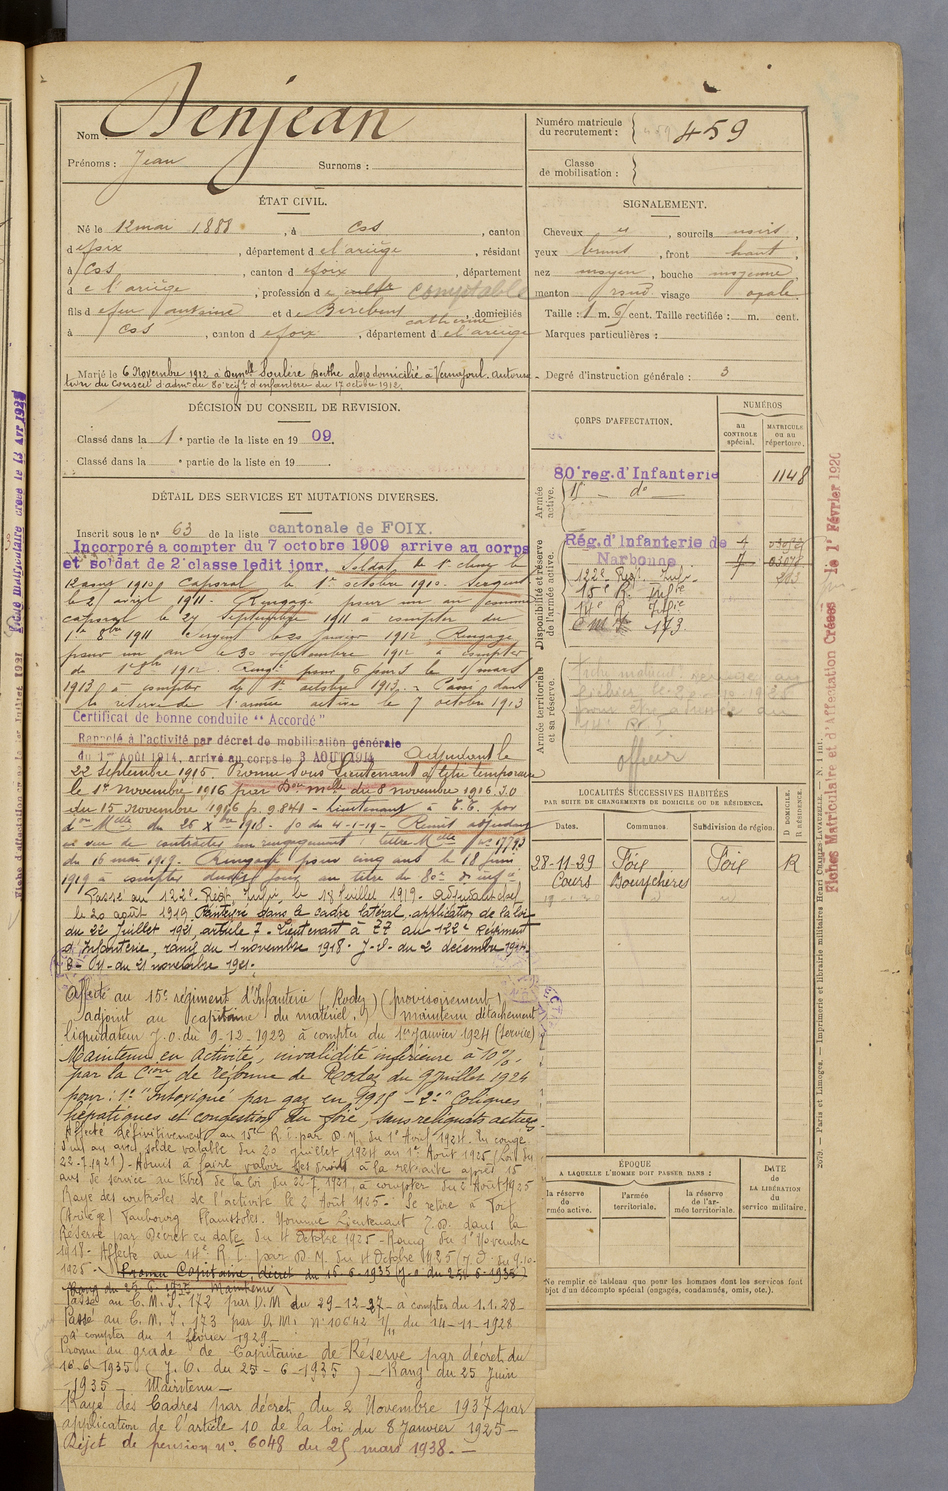 Nom : Denjean
Prénoms : Jean Surnoms :
ÉTAT CIVIL.
Né le 12 mai 1888, à Cos, canton
de foix, département de l'ariège, résidant
à Cos, canton de foix, département
de l'ariège, profession de comptable
fils de feu antoine et de catherine, domiciliés
à Cos, canton de foix, département de l'ariège
Marié le 6 Novembre 1912 à Dem^elle Soulère Berthe alors domiciliée à Vernajoul. Autorisa-
tion du Conseil d'adm^on du 80^e rég^t d'infanterie du 17 octobre 1912.
DÉCISION DU CONSEIL DE REVISION.
Classé dans la 1^e partie de la liste en 1909.
Classé dans la ^e partie de la liste en 19
DÉTAIL DES SERVICES ET MUTATIONS DIVERSES.
Inscrit sous le n° 63 de la liste cantonale de FOIX.
Incorporé a compter du 7 octobre 1909 arrive au corps
et soldat de 2^e classe ledit jour. Soldat de 1^e classe le
12 mars 1910. Caporal le 1^er octobre 1910. Sergent
le 2 avril 1911. Rengagé pour un an comme
caporal le 27 septembre 1911 à compter du
1^er 8^bre 1911 Sergent le 20 janvier 1912 Rengagé
pour un an le 30 septembre 1912 à compter
du 1^er 8^bre 1912 Rengé pour 6 jours le 11 mars
1913, à compter du 1^er octobre 1913. Passé dans
la réserve de l'armée active le 7 octobre 1913
Certificat de bonne conduite "Accordé"
Rappelé à l'activité par décret de mobilisation générale
du 1^er Août 1914, arrivé au corps le 3 AOUT 1914 Adjudant le
22 Septembre 1915. Promu Sous Lieutenant à titre temporaire
le 1^er novembre 1916 par D^on m^elle du 8 novembre 1916. J.O
du 15 novembre 1916 p. 9841 - Lieutenant à T.T. par
D^on M^elle du 26 X^bre 1918. JO du 4-1-19 - Remis adjudant
en vue de contracter un rengagement : lettre M^elle
du 16 mai 1919. Rengagé pour cinq ans le 18 juin
1919 à compter dudit jour au titre du 80^e d'inf^ie
Passé au 122^e Rég^t Inf^ie le 18 Juillet 1919. Adjudant chef
le 20 août 1919. dans le cadre latéral, application de la loi
du 22 Juillet 1921, article 7. Lieutenant à TT au 122^e Régiment
d'Infanterie, rang du 1 novembre 1918. J.O. du 2 décembre 1921.
D- M- du 21 novembre 1921.
Affecté au 15^e régiment d'Infanterie (Rodez) (provisoirement)
adjoint au capitaine du matériel, maintenu détachement
liquidateur J.O. du 9-12-1923 à compter du 1^er Janvier 1924 (service)
Maintenu en activité, invalidité inférieure à 10%.
par la C^ion de réforme de Rodez du 9 juillet 1924
pour : 1° "Intoxiqué par gaz en 1918 - 2° Coliques
hépatiques et congestion du foie, sans reliquats actuels.
Affecté définitivement au 15^e R.I. par D.M. du 1^er Août 1924. En congé
d'un an avec solde valable du 20 juillet 1924 au 1^er Août 1925 (Loi du
22-7-1921) - Admis à faire valoir ses droits à la retraite après 15
ans de service au titre de la loi du 22-7-1921, à compter du 2 Août 1925
Rayé des contrôles de l'activité le 2 Août 1925. Se retire à Foix
(Ariège) Faubourg Planissoles. Nommé Lieutenant T.D. dans la
Réserve par Décret en date du 4 Octobre 1925 - Rang du 1^er Novembre
1918 - Affecté au 14^e R.I. par D.M. du 4 Octobre 1925 (J.O. du 9-10-
1925. - Promu Capitaine, décret du 15-6-1935 (J.O. du 25-6-1935)
Rang du 25-6-1935 Maintenu
Passé au C.M.I. 172 par D.M du 29-12-27 - à compter du 1.1.28 -
Passé au C.M.I. 173 par D.M. n° 10642 1/11 du 14-11-1928
à compter du 1 février 1929 -
Promu au grade de Capitaine de Réserve par décret du
16-6-1935 (J.O. du 25-6-1935) - Rang du 25 Juin
1935 - Maintenu -
Rayé des Cadres par décret du 2 Novembre 1937 par
application de l'article 10 de la loi du 8 Janvier 1925 -
Objet de pension n° 6048 du 25 mars 1938. -
Numéro matricule
du recrutement : 459
Classe
de mobilisation :
SIGNALEMENT.
Cheveux et, sourcils noirs,
yeux bruns, front haut,
nez moyen, bouche moyenne,
menton rond visage ovale.
Taille : 1 m. cent. Taille rectifiée : m. cent.
Marques particulières :
Degré d'instruction générale : 3
CORPS D'AFFECTATION.
NUMÉROS
au
CONTROLE
spécial.
MATRICULE
ou au
répertoire.
Armée
active.
80^e reg. d'Infanterie 1148
d°
Disponibilité et réserve
de l'armée active.
Rég. d'Infanterie de
Narbonne
122^e Rég^t Inf^ie
15^e R. Inf^ie
14^e R. Inf^ie
173
Armée territoriale
et sa réserve.
officier
LOCALITÉS SUCCESSIVES HABITÉES
PAR SUITE DE CHANGEMENTS DE DOMICILE OU DE RÉSIDENCE.
Dates. Communes. Subdivision de région. D DOMICILE. R RÉSIDENCE.
28-11-29 Foix Foix R
Cours Bouychères
ÉPOQUE
A LAQUELLE L'HOMME DOIT PASSER DANS :
DATE
DE LA
LIBÉRATION
du
service militaire.
la réserve
de
armée active.
l'armée
territoriale.
la réserve
de l'ar-
mée territoriale.
Ne remplir ce tableau que pour les hommes dont les services font
objet d'un décompte spécial (engagés, condamnés, omis, etc.).
2079. — Paris et Limoges. — Imprimerie et librairie militaires Henri CHARLES-LAVAUZELLE. — N. 1 int.
Fiches Matriculaire et d'Affectation Créées le 1^er Février 1926